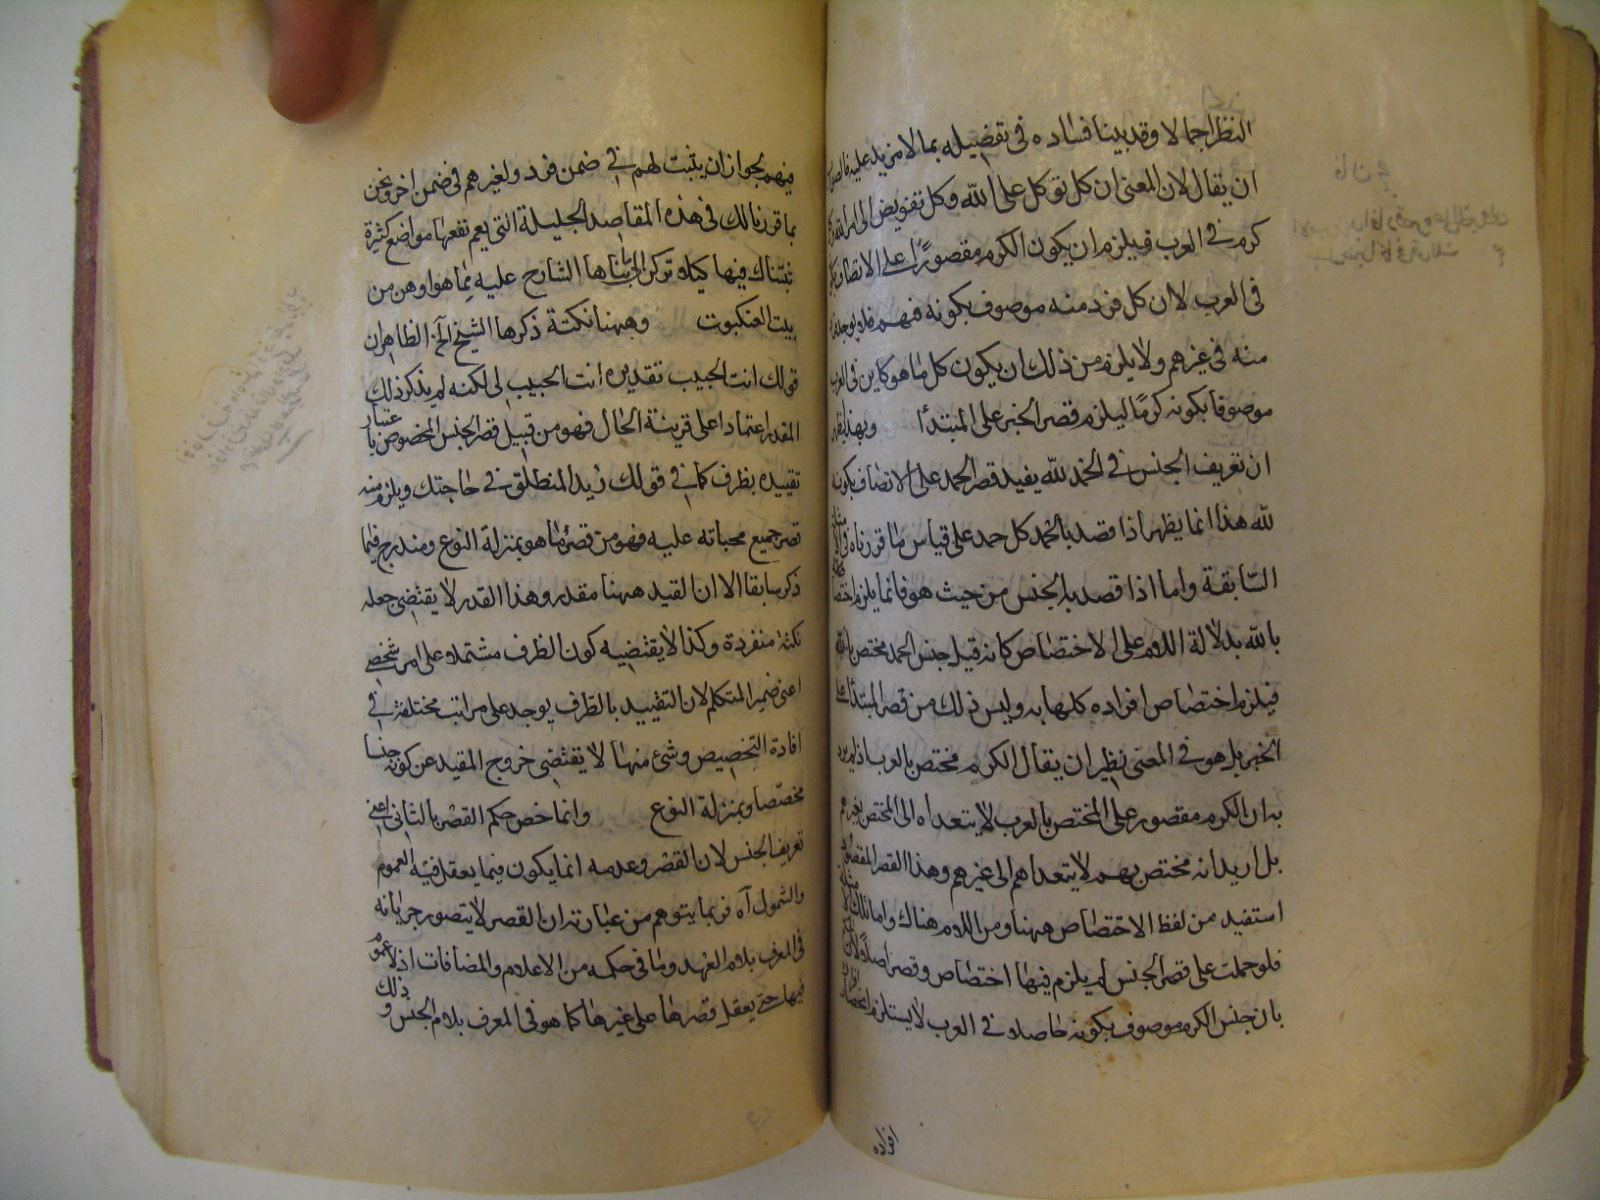 النظر اجمالا وقد بينا فساده في تفصيله بما لا مزيد عليه فالصواب
ان يقال لان المعنى ان كل توكل على الله وكل تفويض الى امر الله وكل
كرم في العرب فيلزم ان يكون الكرم مقصورا على الاتصاف بكونه
في العرب لان كل فرد منه موصوف بكونه فيهم فلا يوجد فرد
منه في غيرهم ولا يلزم من ذلك ان يكون كل ما هو كاين في العرب
موصوفا بكونه كرما ليلزم قصر الخبر على المبتدأ وبهذا يظهر
ان تعريف الجنس في الحمد لله يفيد قصر الحمد على الاتصاف بكونه
لله هذا انما يظهر اذا قصد بالحمد كل حمد على قياس ما قررناه في الامثلة
السابقة واما اذا قصد به الجنس من حيث هو فانما يلزم اختصاصه
بالله بدلالة اللام على الاختصاص كانه قيل جنس الحمد مختص بالله
فيلزم اختصاص افراده كلها به وليس ذلك من قصر المبتدأ على
الخبر بل هو في المعنى نظير ان يقال الكرم مختص بالعرب اذ لم يرد
به ان الكرم مقصور على المختص بالعرب لا يتعداه الى المختص بغيرهم
بل اريد انه مختص بهم لا يتعداهم الى غيرهم وهذا القصر المقصود
استفيد من لفظ الاختصاص ههنا ومن اللام هناك واما تلك الامثلة
فلو حملت على قصر الجنس لم يلزم فيها اختصاص وقصر اصلا لان
بان جنس الكرم موصوف بكونه حاصلا في العرب لا يستلزم انحصار
افراده
فيهم لجواز ان يثبت لهم في ضمن فرد ولغيرهم في ضمن اخر ونحن
بما قررنا لك في هذه المقاصد الجليلة التي يعم نفعها مواضع كثيرة
ثبتناك فيها كيلا تركن الى ما بناها الشارح عليه مما هو اوهن من
بيت العنكبوت وههنا نكتة ذكرها الشيخ الخ الظاهر ان
قولك انت الحبيب تقديره انت الحبيب لي لكنه لم يذكر ذلك
المقدر اعتمادا على قرينة الحال فهو من قبيل قصر الجنس المخصوص باعتبار
تقييده بظرف كما في قولك زيد المنطلق في حاجتك ويلزم منه
قصر جميع محباته عليه فهو من قصر ما هو بمنزلة النوع ومندرج فيما
ذكر سابقا الا ان القيد ههنا مقدر وهذا القدر لا يقتضي جعله
نكتة منفردة وكذا لا يقتضيه كون الظرف مشتملا على امر شخصي
اعني ضمير المتكلم لان التقييد بالظرف يوجد على مراتب مختلفة في
افادة التخصيص وشئ منها لا يقتضي خروج المقيد عن كونه جنسا
مخصصا وبمنزلة النوع وانما خص حكم القصر بالثاني اعني
تعريف الجنس لان القصر وعدمه انما يكون فيما يعقل فيه العموم
والشمول اه فربما يتوهم من عبارته ان القصر لا يتصور جريانه
في المعرف بلام العهد وما في حكمه من الاعلام والمضافات اذ لا عموم
فيها حتى يعقل قصرها على غيرها كما هو في المعرف بلام الجنس و ذلك